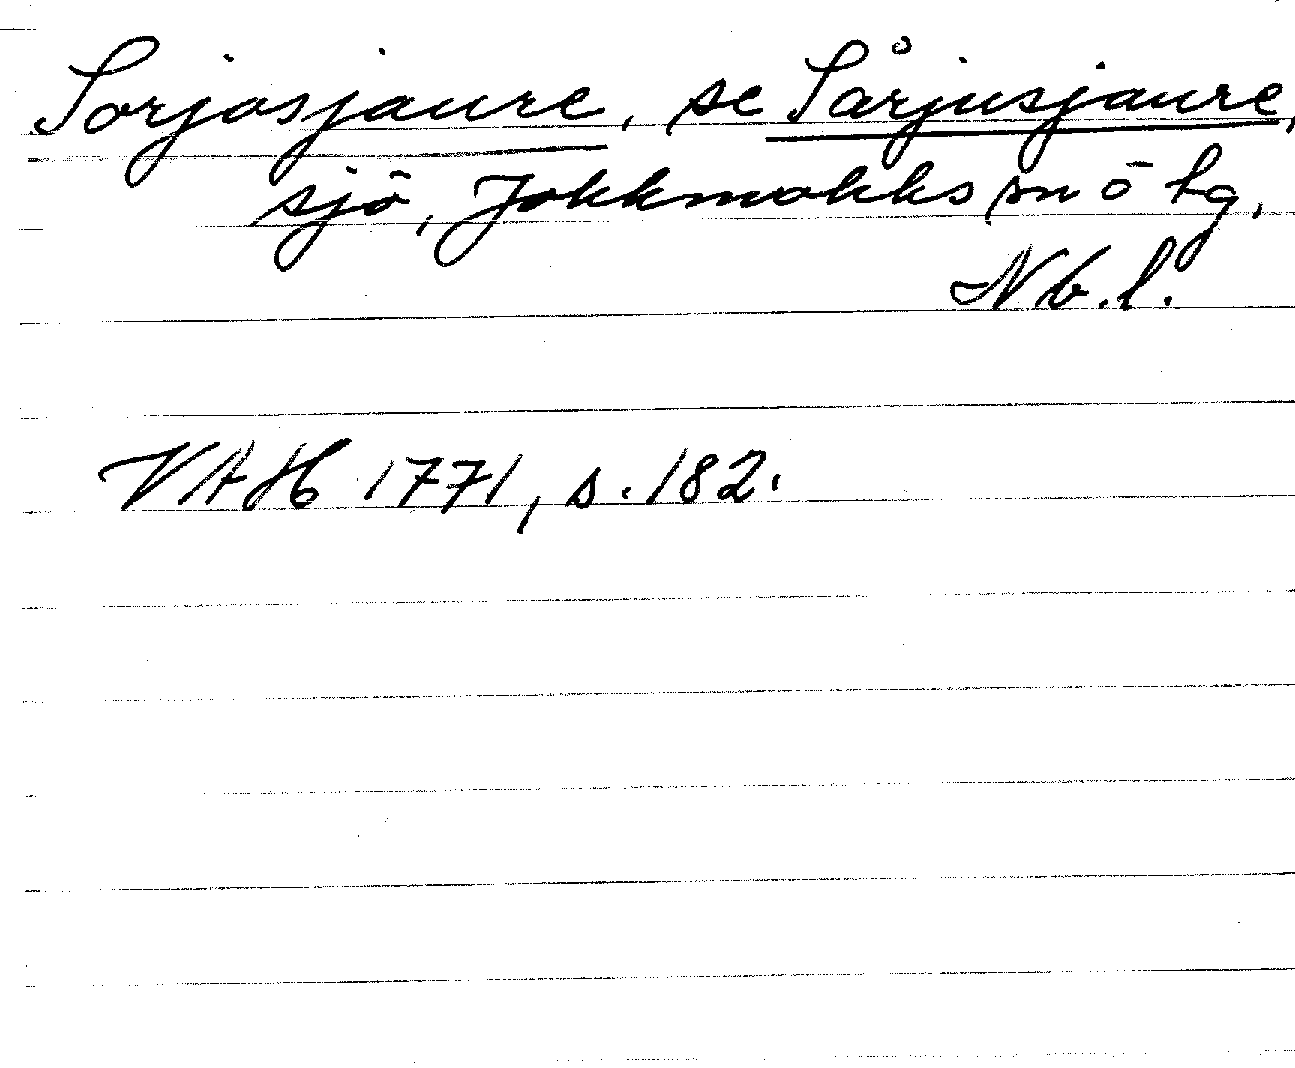 Sorjosjaure, se Sårjusjaure,
sjö, Jokkmokks sn ō lg,
Nb.l.
VAH 1771, s. 182.